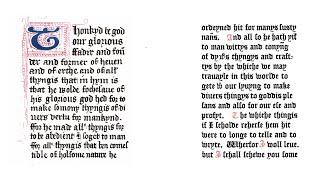 Thonkyd be god
our glorious
ffader and foun
der and former of heuen
and of erthe and of all
thyngis that in hymn is
that he wolde fochesaue of
his glorious god hed for to
make so mony thyngis of di
uers vertu for mankynd.
ffor he made all thyngis for
to be obedient & soget to man
ffor all thyngis that ben comes
tible of holsome nature he
ordeyned hit for manys susty
nans. And all so he hath yef
to man wittys and conyng
of dyvers thyngys and craft-
tys by the whiche we may
travayle in this worlde to
gete us our lyvyng to make
divers thingys to goddis ples
sans and also for our ese and
profyt. The whiche thingis
if I scholde reherse hem hit
were to longe to telle and to
wryte, Wherfor I woll leue.
but I schall schewe you some